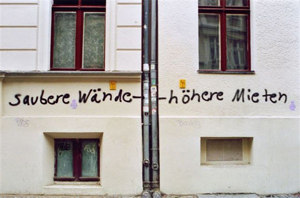 saubere Wände - höhere Mieten